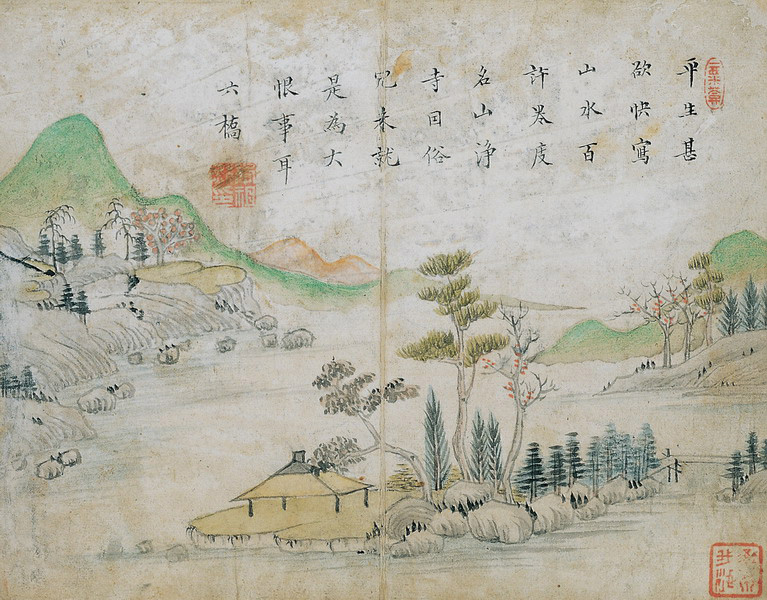 平生甚
欲快寫
山水百
許卷度
名山淨
寺目俗
冗未就
是為大
恨事耳
六橋